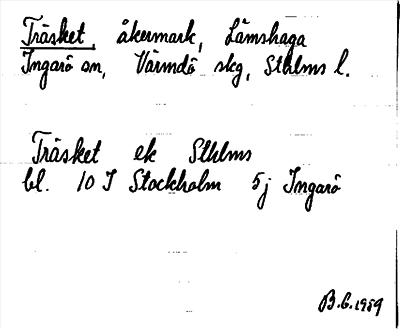 Träsket, åkermark, Lämshaga
Ingarö sn, Värmdö skg, Sthlms l.
Träsket ek Sthlms
bl. 10 I Stockholm 5j Ingarö
B.G. 1959